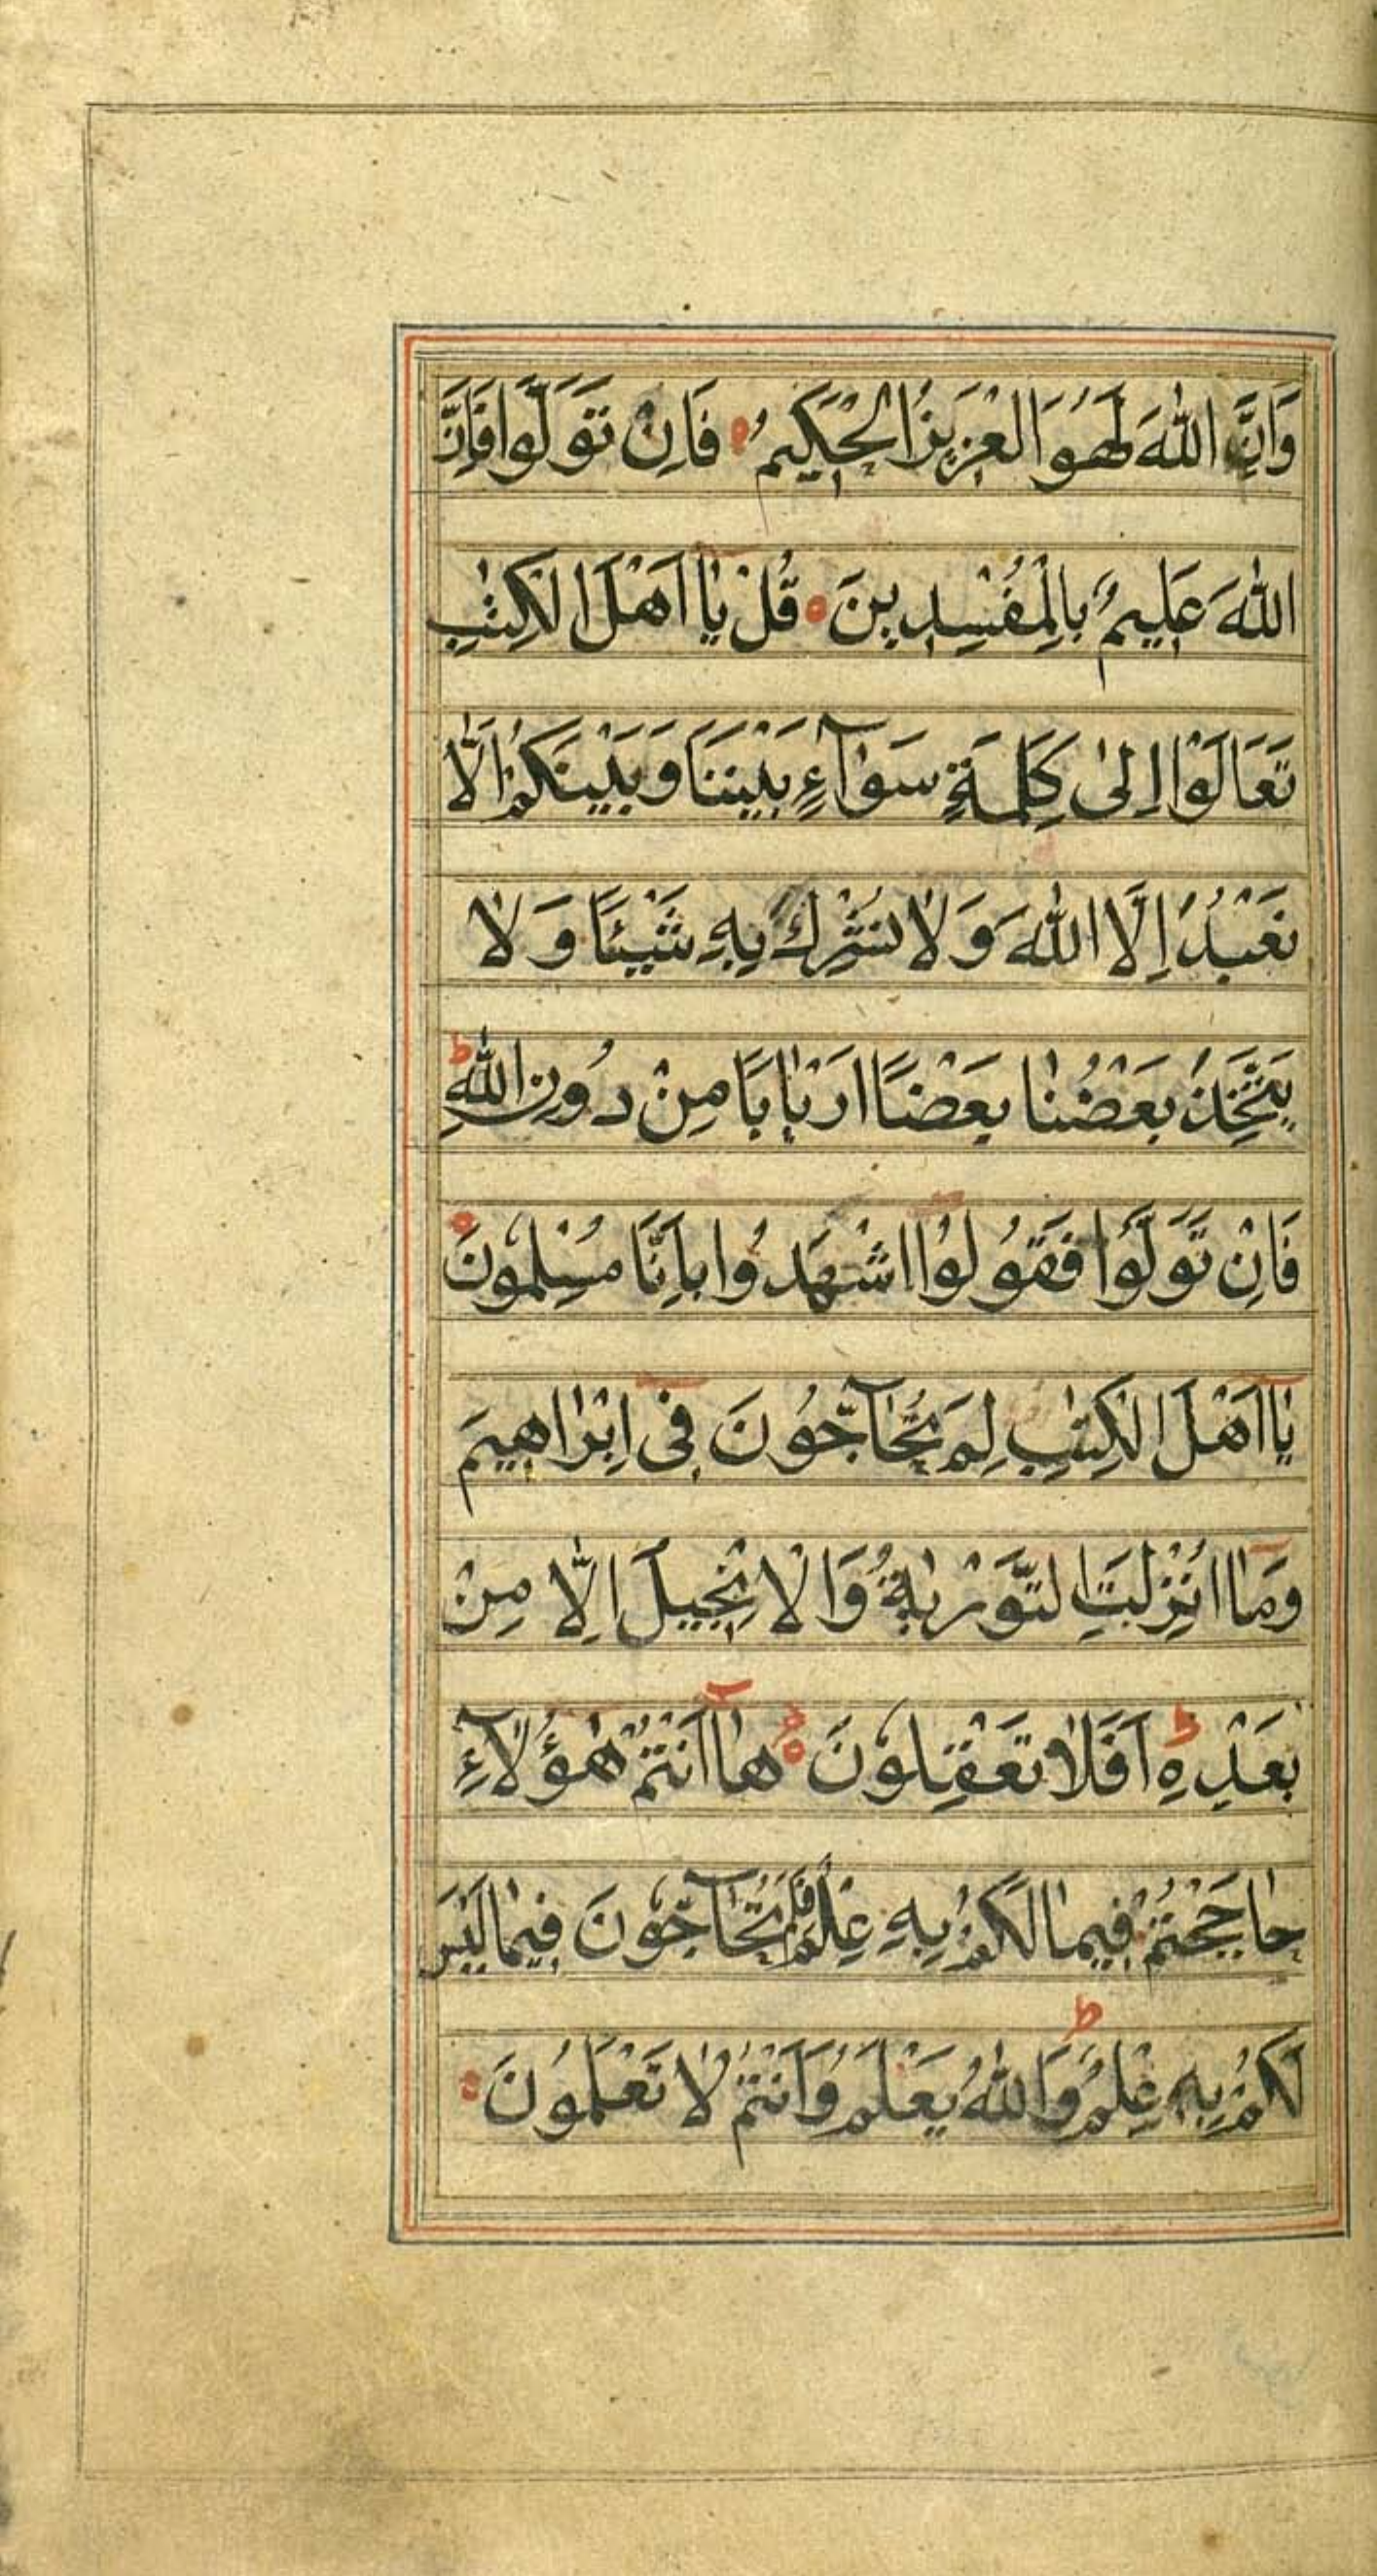 وَاِنَّ اللّٰهَ لَهُوَ الْعَزِيزُ الْحَكِيمُ ۝ فَاِنْ تَوَلَّوْا فَاِنَّ
اللّٰهَ عَلِيمٌ بِالْمُفْسِدِينَ ۝ قُلْ يٰا اَهْلَ الْكِتٰبِ
تَعَالَوْا اِلٰى كَلِمَةٍ سَوٰآءٍ بَيْنَنَا وَبَيْنَكُمْ اَلَّا
نَعْبُدَ اِلَّا اللّٰهَ وَلٰا نُشْرِكَ بِهِ شَيْئًا وَلٰا
يَتَّخِذَ بَعْضُنٰا بَعْضًا اَرْبٰابًا مِنْ دُونِ اللّٰهِ ط
فَاِنْ تَوَلَّوْا فَقُولُوا اشْهَدُوا بِاَنَّا مُسْلِمُونَ ۝
يٰا اَهْلَ الْكِتٰبِ لِمَ تُحٰآجُّونَ فِى اِبْرٰاهِيمَ
وَمٰا اُنْزِلَتِ التَّوْرٰيةُ وَالْاِنْجِيلُ اِلّٰا مِنْ
بَعْدِهِ ط اَفَلٰا تَعْقِلُونَ ۝ هٰا اَنْتُمْ هٰؤُلٰآءِ
حٰاجَجْتُمْ فِيمٰا لَكُمْ بِهِ عِلْمٌ فَلِمَ تُحٰآجُّونَ فِيمٰا لَيْسَ
لَكُمْ بِهِ عِلْمٌ ط وَاللّٰهُ يَعْلَمُ وَاَنْتُمْ لٰا تَعْلَمُونَ ۝